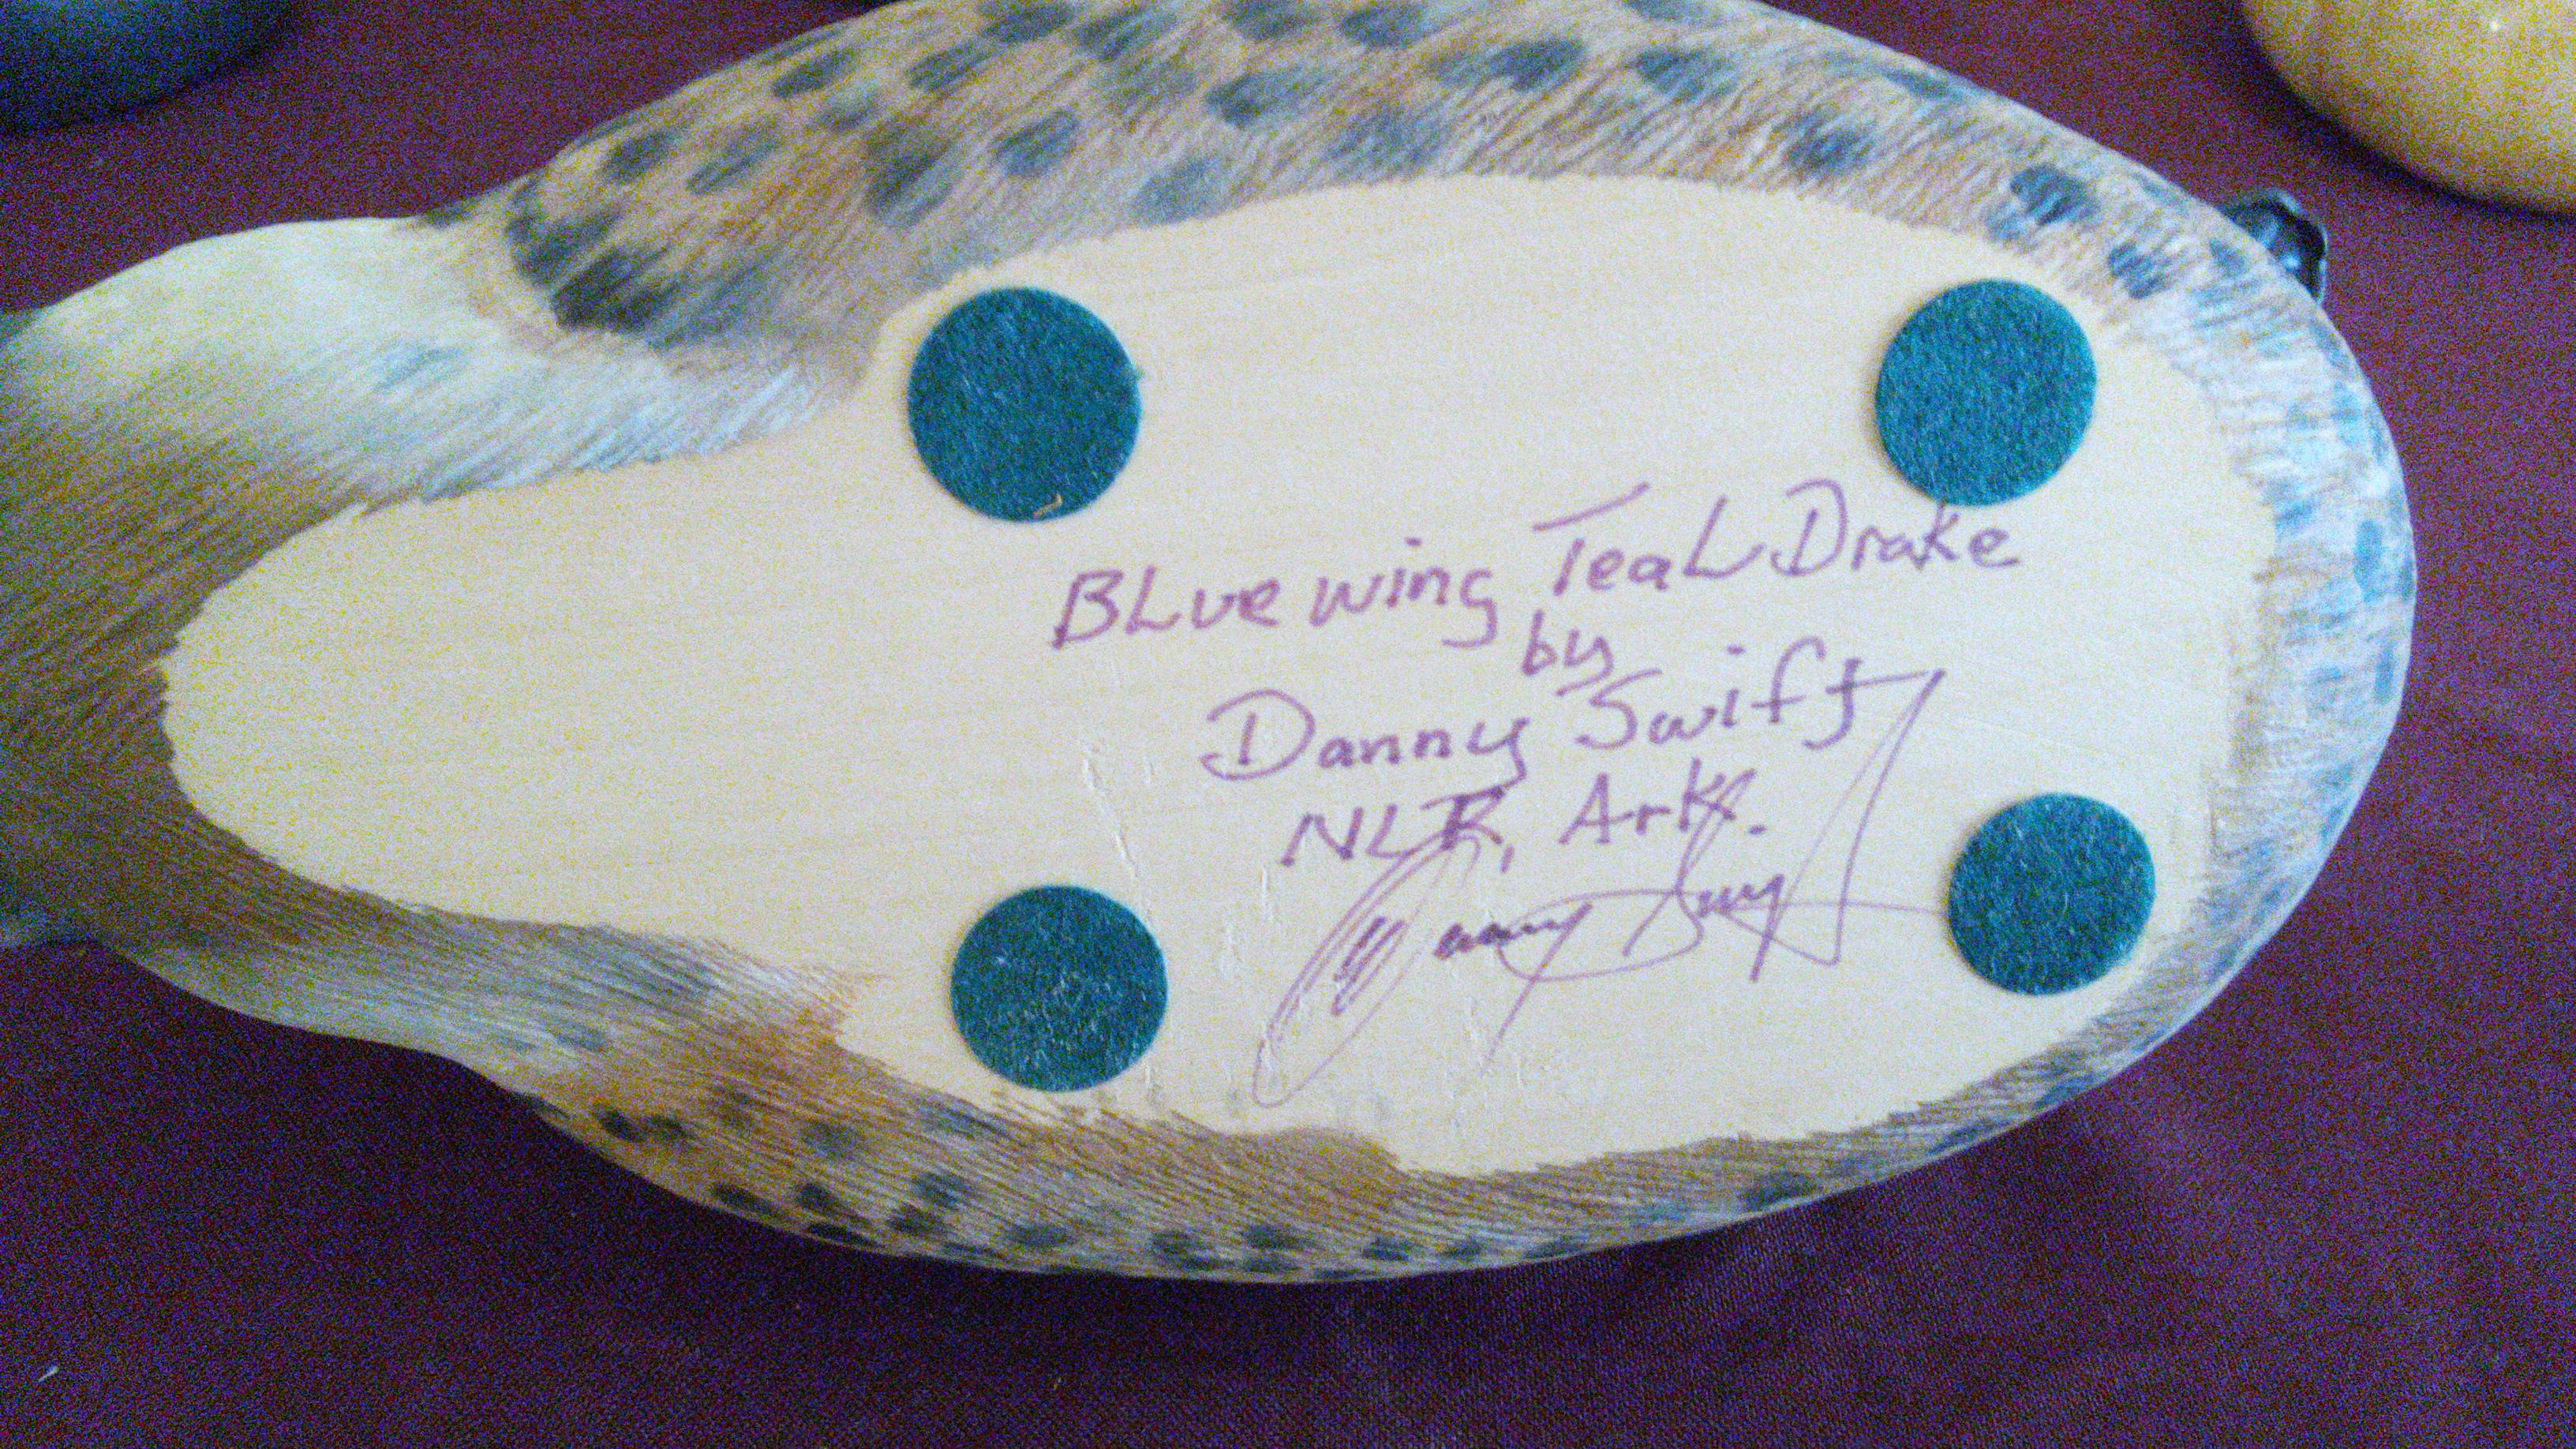 BLue wing TeaL Drake
by
Danny Swift
NLR, Ark.
Danny Swift